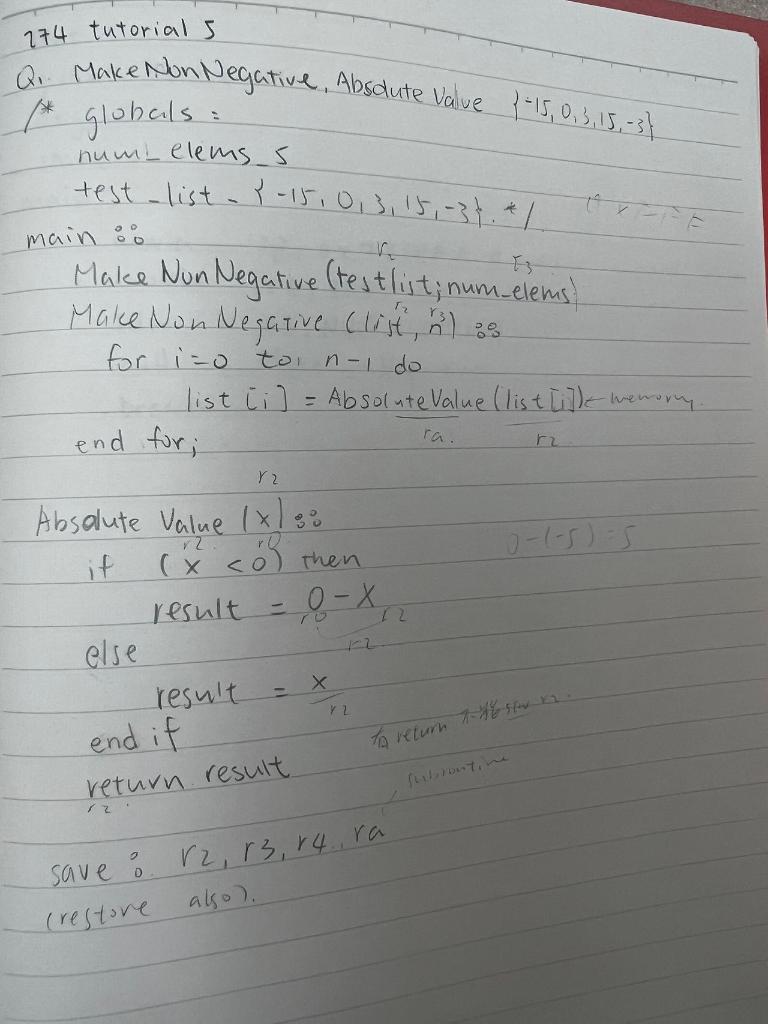 274 tutorial 5
Q1. MakeNonNegative, Absolute Value {-15, 0, 3, 15, -3}
/* globals =
num_elems_5
test_list_{-15, 0, 3, 15, -3}. */
main ::
r2 r3
Make NonNegative (testlist; num_elems)
r2 r3
Make Non Negative (list, n) ::
for i=0 to n-1 do
list [i] = AbsoluteValue (list [i]) ← memory.
ra. r2
end for;
r2
Absolute Value (x) ::
r2 r0
if (x <0) then
0-(-5) = 5
result = 0-x
r0 r2
r2
else
result = x
r2
end if
有 return 不能 r2.
return result
r2.
subroutine
save : r2, r3, r4, ra
(restore also).